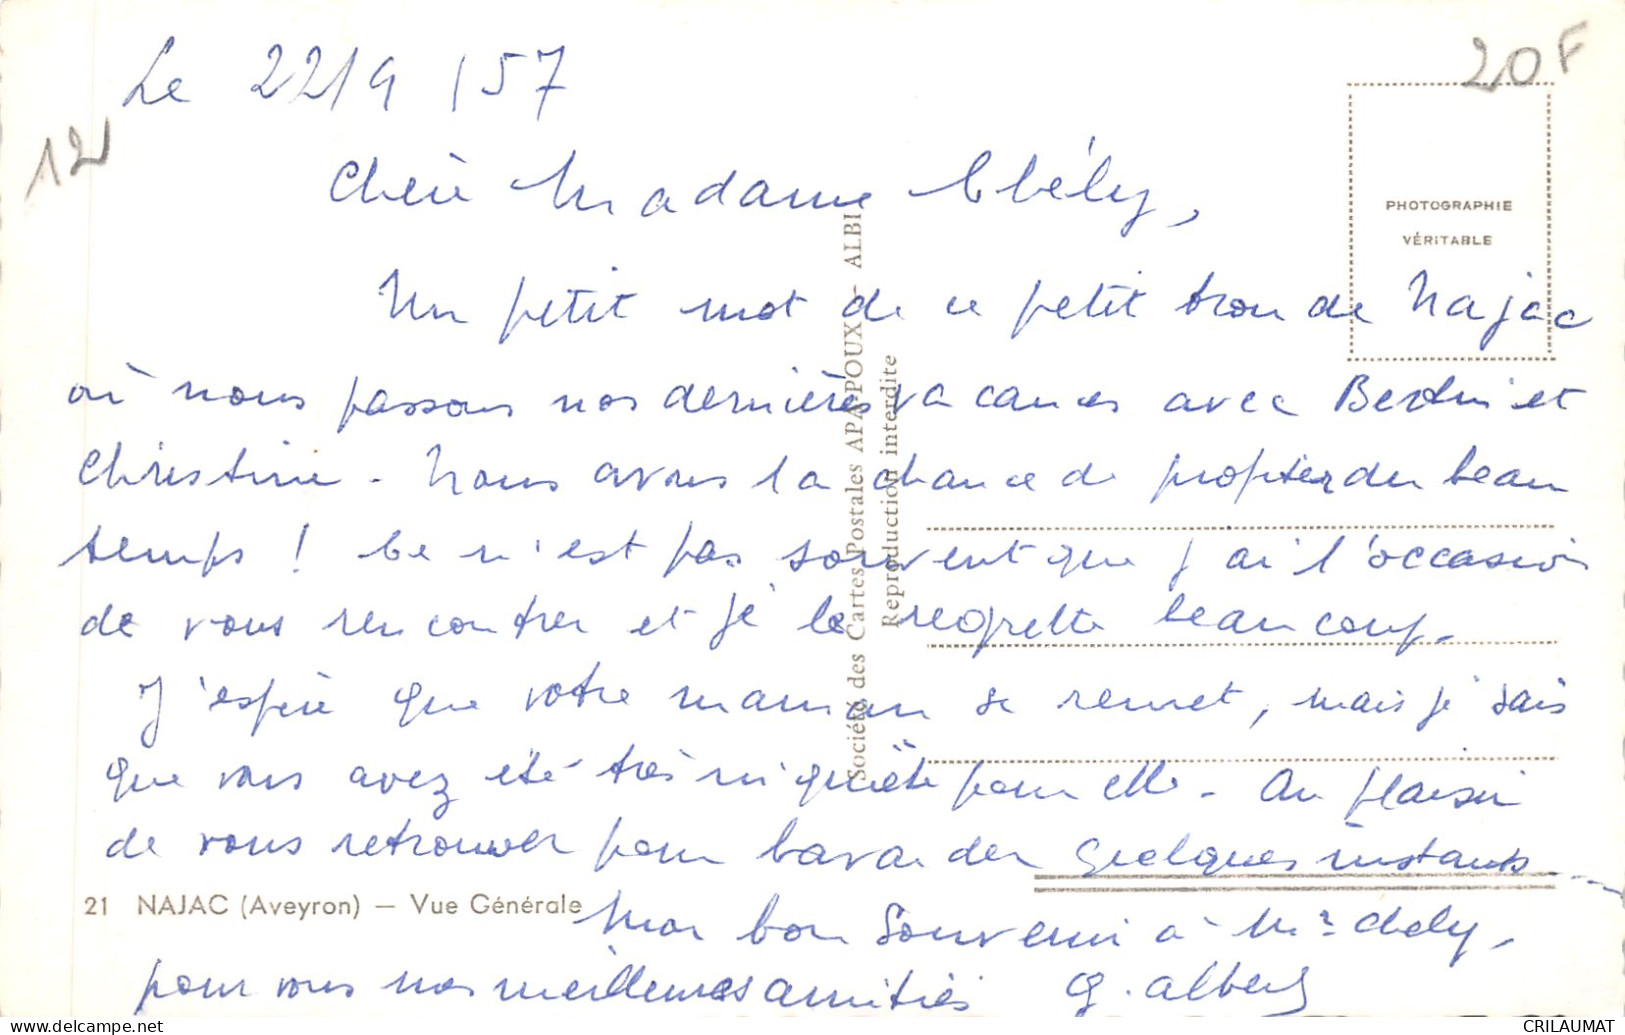 Le 22/9/57
20F
12
Chère Madame Chély,
PHOTOGRAPHIE
VÉRITABLE
Un petit mot de ce petit trou de Najac
où nous passons nos dernières vacances avec Bertin et
Christine - Nous avons la chance de profiter du beau
temps ! Ce n'est pas souvent que j'ai l'occasion
de vous rencontrer et je le regrette beaucoup.
J'espère que votre maman se remet, mais je sais
que vous avez été très inquiète pour elle - Au plaisir
de vous retrouver pour bavarder quelques instants...
21 NAJAC (Aveyron) — Vue Générale
Mon bon souvenir à Mr Chély,
pour vous nos meilleures amitiés G. Albert
Société des Cartes Postales APA-POUX - ALBI
Reproduction interdite
delcampe.net
CRILAUMAT